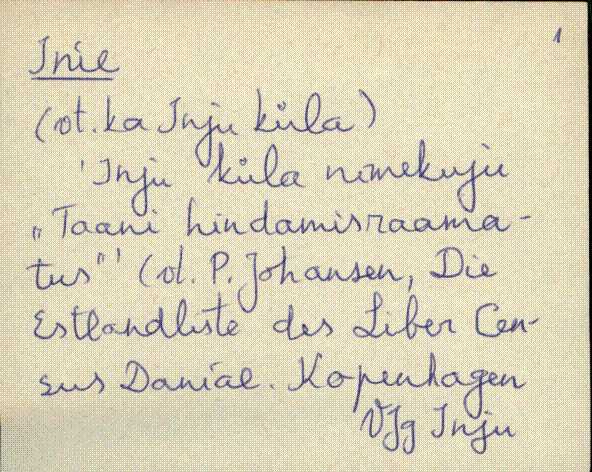 1
Inie
(vt. ka Inju küla)
'Inju küla nimekuju
„Taani hindamisraama-
tus"' (vt. P. Johansen, Die
Estlandliste des Liber Cen-
sus Daniae. Kopenhagen
VJg Inju